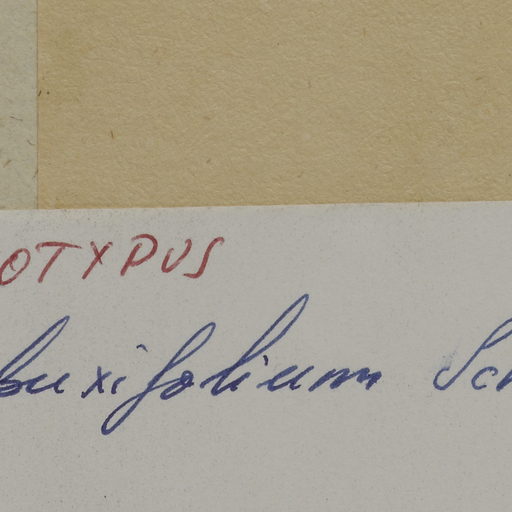 OTYPUS
buxifolium Sch